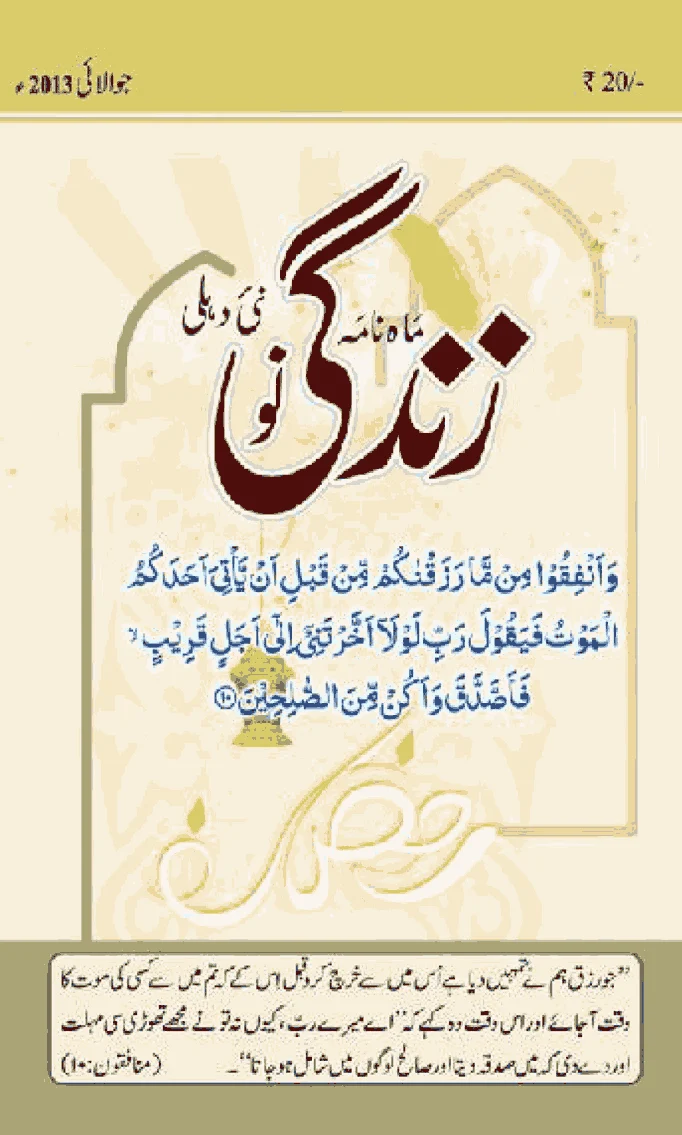 جولائی 2013ء
₹ 20/-
ماہ نامہ
زندگی نو
نئی دہلی
وَاَنْفِقُوْا مِنْ مَّا رَزَقْنٰكُمْ مِّنْ قَبْلِ اَنْ يَّاْتِيَ اَحَدَكُمُ
الْمَوْتُ فَيَقُوْلَ رَبِّ لَوْلَاۤ اَخَّرْتَنِيْۤ اِلٰۤى اَجَلٍ قَرِيْبٍ ۙ
فَاَصَّدَّقَ وَاَكُنْ مِّنَ الصّٰلِحِيْنَ ۝۱۰
رمضان
”جو رزق ہم نے تمہیں دیا ہے اُس میں سے خرچ کرو قبل اس کے کہ تم میں سے کسی کی موت کا
وقت آجائے اور اس وقت وہ کہے کہ ”اے میرے ربّ، کیوں نہ تو نے مجھے تھوڑی سی مہلت
اور دے دی کہ میں صدقہ دیتا اور صالح لوگوں میں شامل ہوجاتا“۔ (منافقون:۱۰)